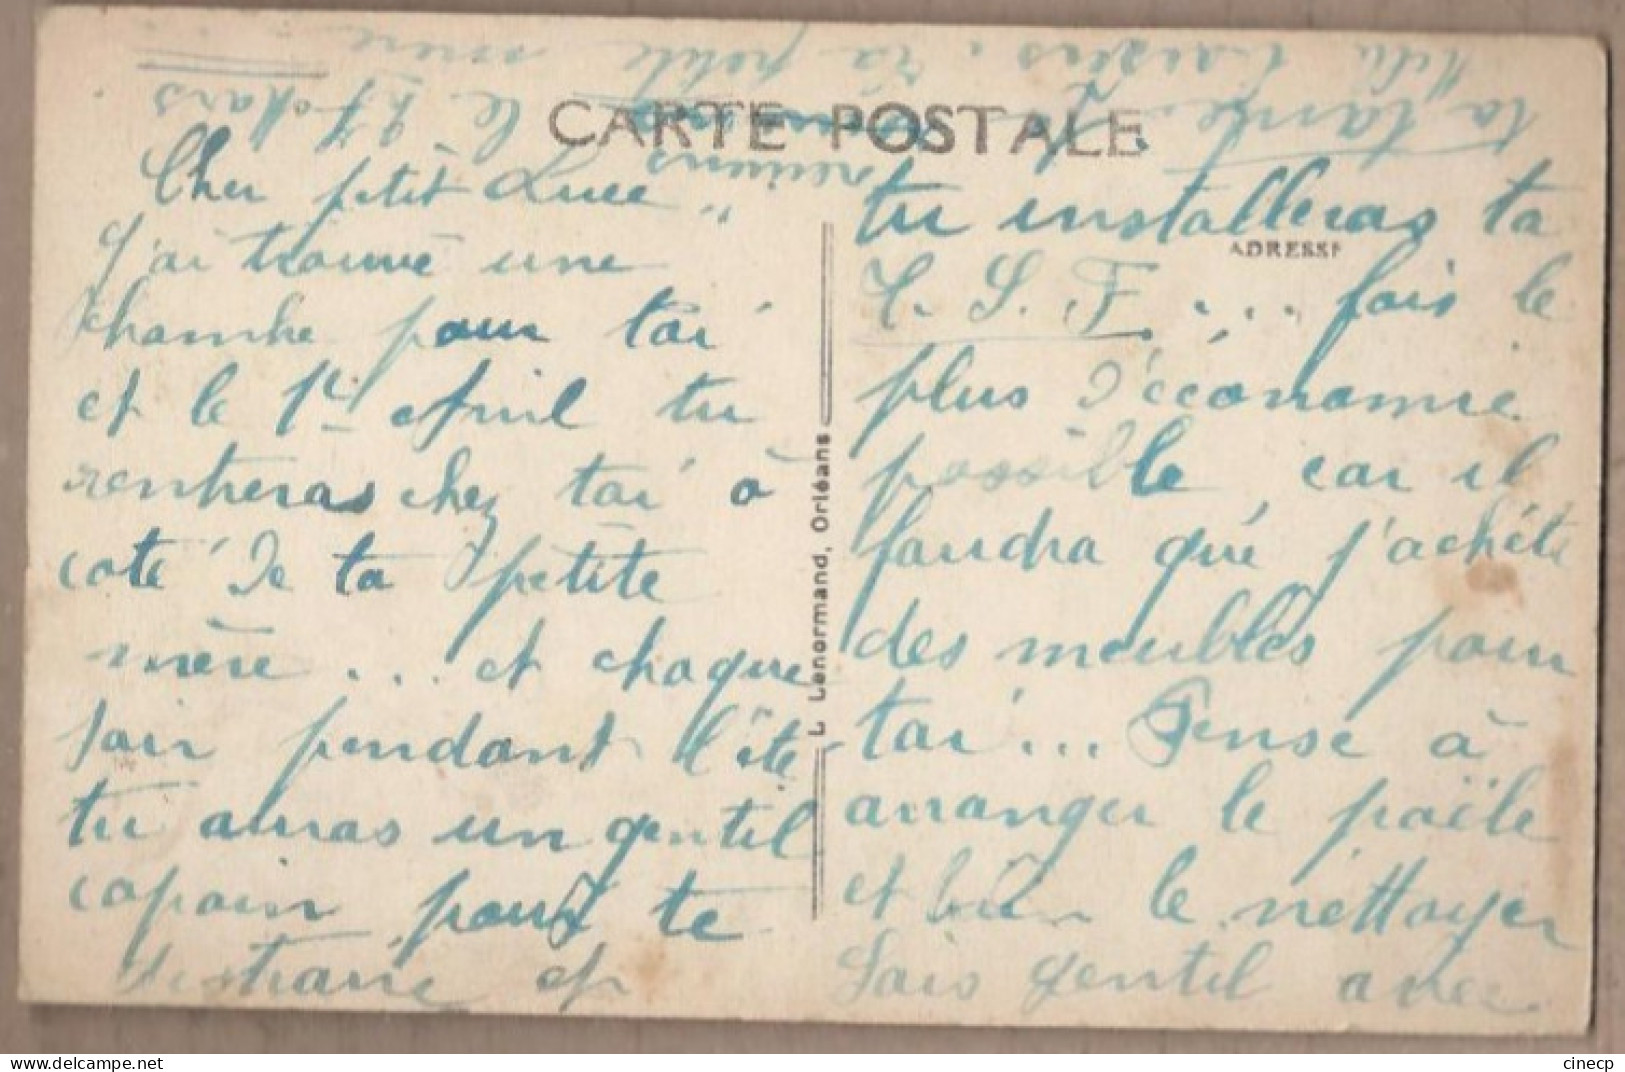 CARTE POSTALE
Cher petit Luce
J'ai trouvé une
chambre pour toi
et le 1er Avril tu
rentreras chez toi à
coté de ta petite
mère ... et chaque
soir pendant l'été
tu auras un gentil
copain pour te
distraire et
L Lenormand, Orléans
ADRESSE
tu installeras ta
T. S. F. .... fais le
plus d'économie
possible, car il
faudra que j'achète
des meubles pour
toi ... Pense à
arranger le poële
et bien le nettoyer
Sois gentil avec
ta tante. Je reviens le 27 Mars
Mille baisers. Ta petite mère
cinecp